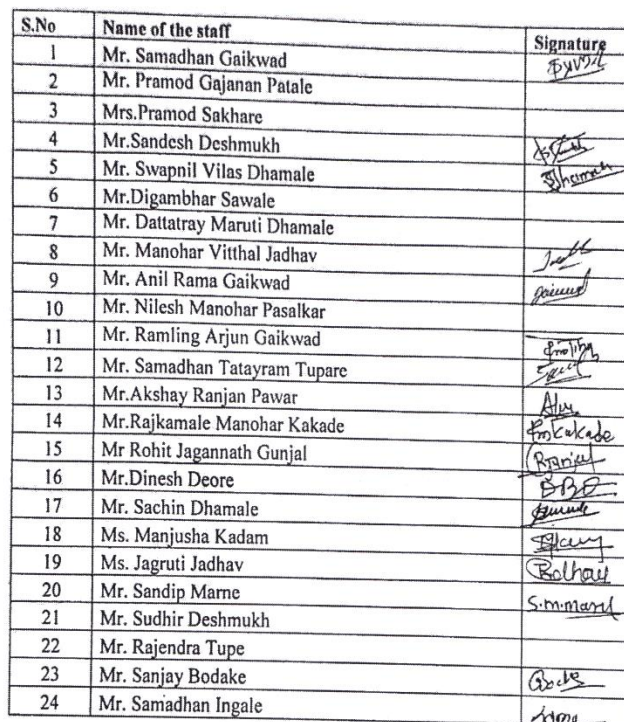 S.No Name of the staff Signature
1 Mr. Samadhan Gaikwad
2 Mr. Pramod Gajanan Patale
3 Mrs.Pramod Sakhare
4 Mr.Sandesh Deshmukh
5 Mr. Swapnil Vilas Dhamale
6 Mr.Digambhar Sawale
7 Mr. Dattatray Maruti Dhamale
8 Mr. Manohar Vitthal Jadhav
9 Mr. Anil Rama Gaikwad
10 Mr. Nilesh Manohar Pasalkar
11 Mr. Ramling Arjun Gaikwad
12 Mr. Samadhan Tatayram Tupare
13 Mr.Akshay Ranjan Pawar
14 Mr.Rajkamale Manohar Kakade
15 Mr Rohit Jagannath Gunjal
16 Mr.Dinesh Deore
17 Mr. Sachin Dhamale
18 Ms. Manjusha Kadam
19 Ms. Jagruti Jadhav
20 Mr. Sandip Marne
21 Mr. Sudhir Deshmukh
22 Mr. Rajendra Tupe
23 Mr. Sanjay Bodake
24 Mr. Samadhan Ingale